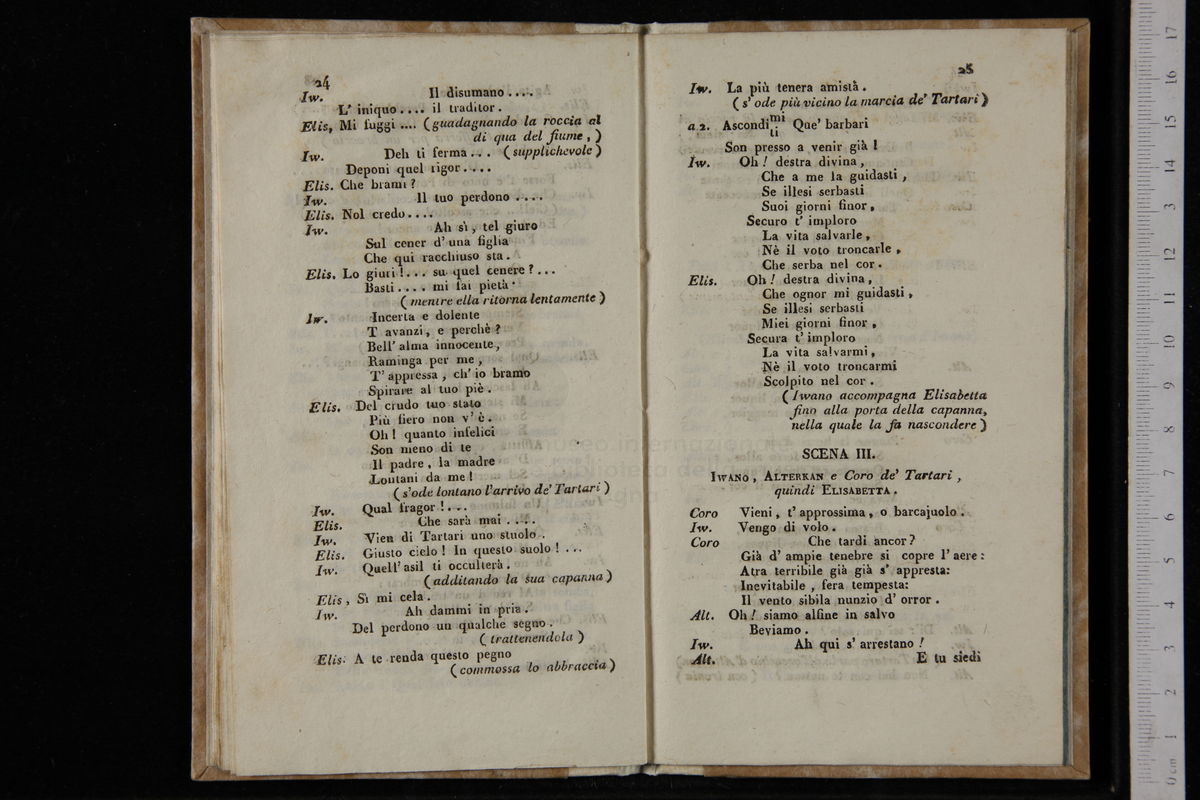 24
Iw. Il disumano ....
L' iniquo .... il traditor.
Elis, Mi fuggi .... (guadagnando la roccia al
di qua del fiume, )
Iw. Deh ti ferma ... (supplichevole)
Deponi quel rigor ....
Elis. Che brami ?
Iw. Il tuo perdono ....
Elis. Nol credo ....
Iw. Ah sì, tel giuro
Sul cener d' una figlia
Che qui racchiuso sta.
Elis. Lo giuri !... su quel cenere ? ...
Basti .... mi fai pietà.
(mentre ella ritorna lentamente)
Iw. Incerta e dolente
T avanzi, e perchè ?
Bell' alma innocente,
Raminga per me,
T' appressa, ch' io bramo
Spirare al tuo piè.
Elis. Del crudo tuo stato
Più fiero non v' è.
Oh ! quanto infelici
Son meno di te
Il padre, la madre
Lontani da me !
(s'ode lontano l'arrivo de' Tartari)
Iw. Qual fragor !...
Elis. Che sarà mai ....
Iw. Vien di Tartari uno stuolo.
Elis. Giusto cielo ! In questo suolo ! ...
Iw. Quell' asil ti occulterà.
(additando la sua capanna)
Elis, Sì mi cela.
Iw. Ah dammi in pria.
Del perdono un qualche segno.
(trattenendola)
Elis. A te renda questo pegno
(commossa lo abbraccia)
25
Iw. La più tenera amistà.
(s' ode più vicino la marcia de' Tartari)
a 2. Ascondi mi ti Que' barbari
Son presso a venir già !
Iw. Oh ! destra divina,
Che a me la guidasti,
Se illesi serbasti
Suoi giorni finor,
Securo t' imploro
La vita salvarle,
Nè il voto troncarle,
Che serba nel cor.
Elis. Oh ! destra divina,
Che ognor mi guidasti,
Se illesi serbasti
Miei giorni finor,
Secura t' imploro
La vita salvarmi,
Nè il voto troncarmi
Scolpito nel cor.
(Iwano accompagna Elisabetta
fino alla porta della capanna,
nella quale la fa nascondere)
SCENA III.
IWANO, ALTERKAN e Coro de' Tartari,
quindi ELISABETTA.
Coro Vieni, t' approssima, o barcajuolo.
Iw. Vengo di volo.
Coro Che tardi ancor ?
Già d' ampie tenebre si copre l' aere :
Atra terribile già già s' appresta:
Inevitabile, fera tempesta:
Il vento sibila nunzio d' orror.
Alt. Oh ! siamo alfine in salvo
Beviamo.
Iw. Ah qui s' arrestano !
Alt. E tu siedi
museo internazionale
e biblioteca della musica
0 cm 1 2 3 4 5 6 7 8 9 10 11 12 13 14 15 16 17